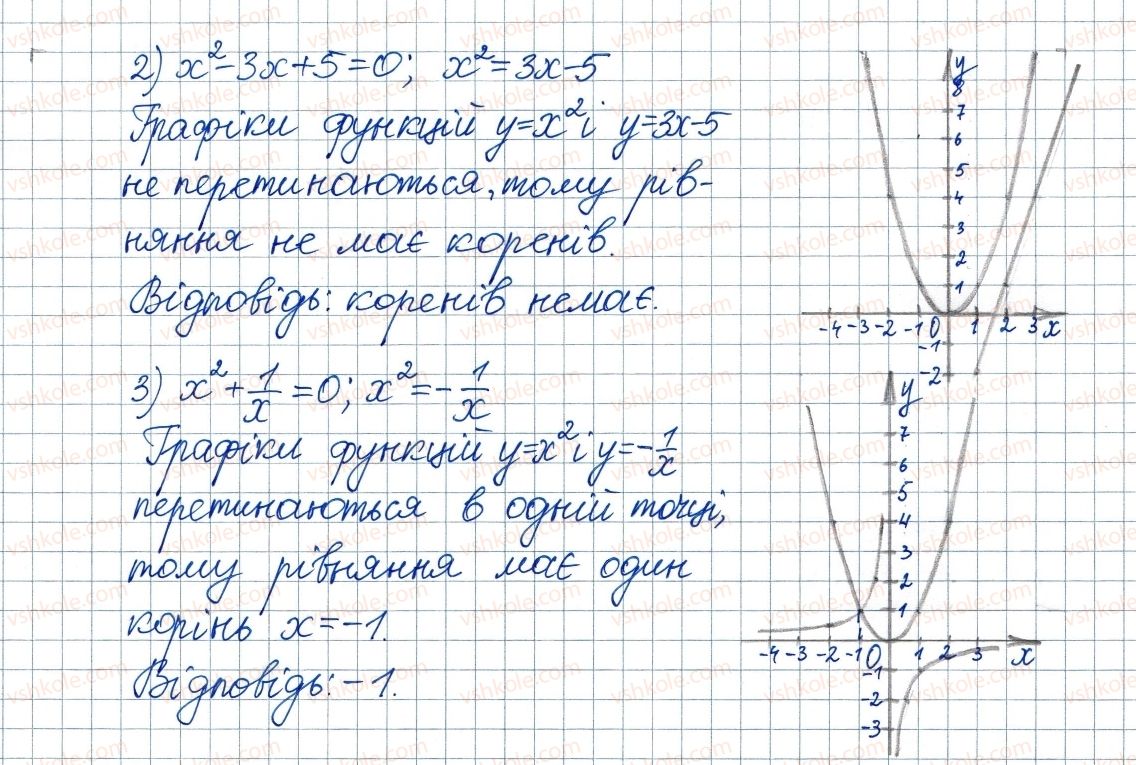 2) x²-3x+5=0; x²=3x-5
Графіки функцій y=x² і y=3x-5
не перетинаються, тому рів-
няння не має коренів.
Відповідь: коренів немає.
3) x²+1/x=0; x²=-1/x
Графіки функцій y=x² і y=-1/x
перетинаються в одній точці,
тому рівняння має один
корінь x=-1.
Відповідь: -1.
y
8
7
6
5
4
3
2
1
-4 -3 -2 -1 0 1 2 3 x
-1
-2
y
7
6
5
4
3
2
1
-4 -3 -2 -1 0 1 2 3 x
-1
-2
-3
vshkole.com